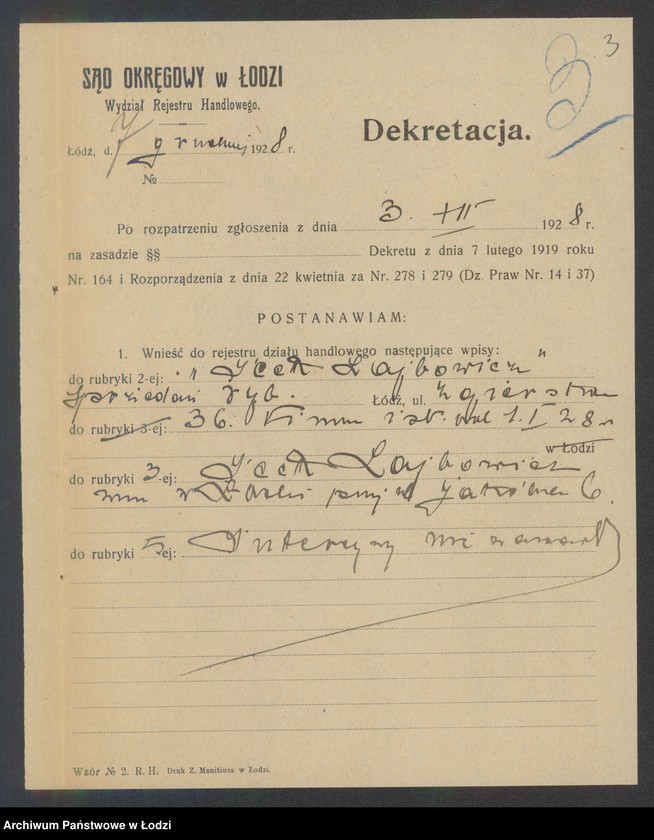 3
SĄD OKRĘGOWY w ŁODZI
Wydział Rejestru Handlowego.
Dekretacja.
Łódź, d. 7 grudnia 1928 r.
№
Po rozpatrzeniu zgłoszenia z dnia 3. XII 1928 r.
na zasadzie §§ Dekretu z dnia 7 lutego 1919 roku
Nr. 164 i Rozporządzenia z dnia 22 kwietnia za Nr. 278 i 279 (Dz. Praw Nr. 14 i 37)
POSTANAWIAM:
1. Wnieść do rejestru działu handlowego następujące wpisy:
do rubryki 2-ej: "Icek Lajbowicz"
Sprzedaż ryb. Łódź, ul. Zgierska
do rubryki 3-ej: 36. Firma ist. od 1. I 28 r
w Łodzi
do rubryki 3-ej: Icek Lajbowicz
zam w Łodzi przy ul Jakóba 6.
do rubryki 5-ej: Intercyzy nie zawarł
Wzór № 2. R. H. Druk Z. Manitiusa w Łodzi.
Archiwum Państwowe w Łodzi